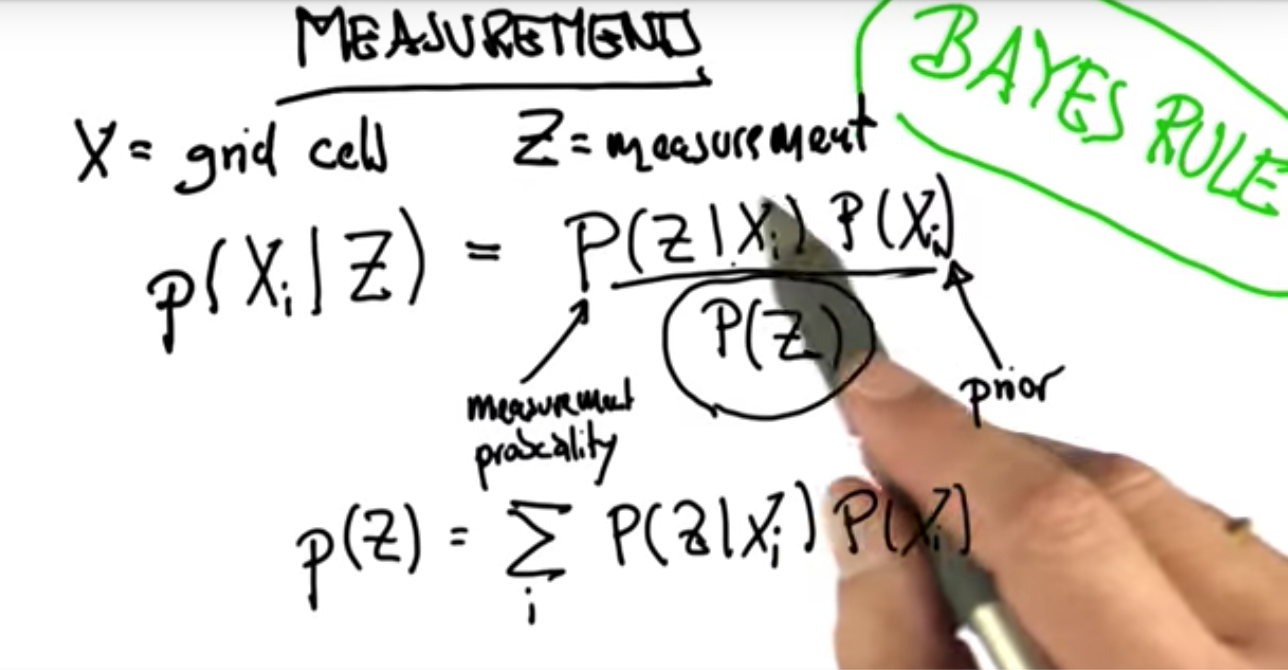 MEASUREMENTS
BAYES RULE
X = grid cell Z = measurement
p(Xi|Z) = P(Z|Xi) P(Xi)
P(Z)
measurement
probability
prior
p(Z) = ∑ P(Z|Xi) P(Xi)
i